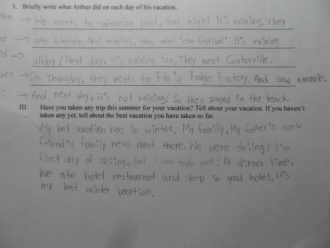 3. Briefly write what Arthur did on each day of his vacation.
→ He wents to swimming pool, that night it's raining. They
→ ate . Next , they went "cow festival". It's raining
→ allday! Next day, it's raining too. They went Gatorville.
→ On Thursday, they wents to Flo's Fudge Factory. And saw a movie.
→ And next day, it's not raining! So they played in the beach.
III. Have you taken any trip this summer for your vacation? Tell about your vacation. If you haven't
taken any yet, tell about the best vacation you have taken so far.
My best vacation was in winter. My family, My father's
friend's family were meet there. We were skiing! I'm
first day of skiing, but I can ride well! At dinner time,
We ate hotel restaurant and sleep in good hotel. It's
my best winter vacation.